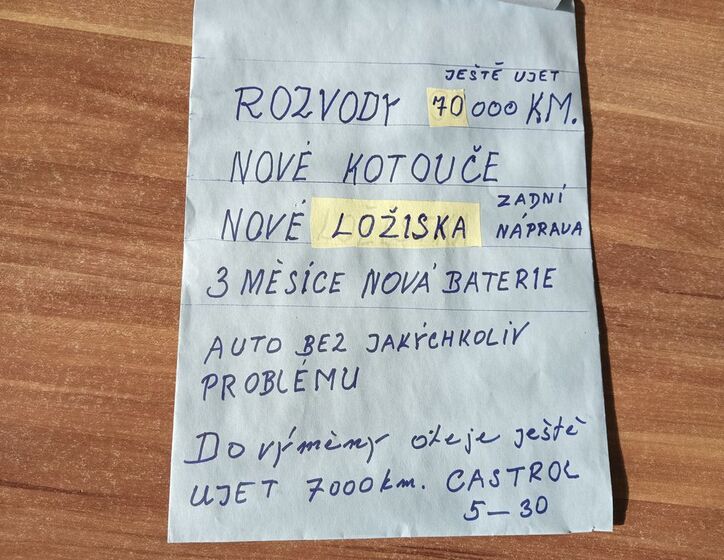 JEŠTĚ UJET
ROZVODY 70000 KM.
NOVÉ KOTOUČE
NOVÉ LOŽISKA ZADNÍ NÁPRAVA
3 MĚSÍCE NOVÁ BATERIE
AUTO BEZ JAKÝCHKOLIV
PROBLÉMU
Do výměny oleje ještě
UJET 7000 km. CASTROL
5-30